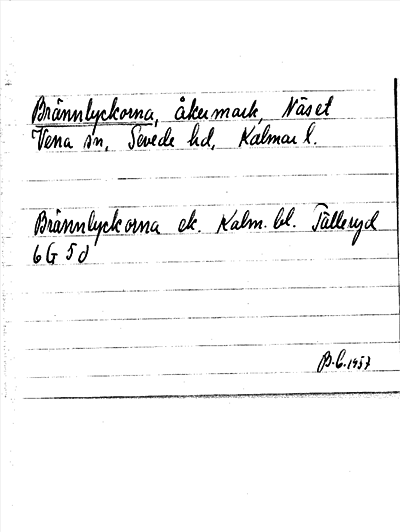 Brännlyckorna, åkermark, Näset
Vena sn, Sevede hd, Kalmar l.
Brännlyckorna ek. Kalm. bl. Tälleryd
6 G 5 d
B.C. 1957